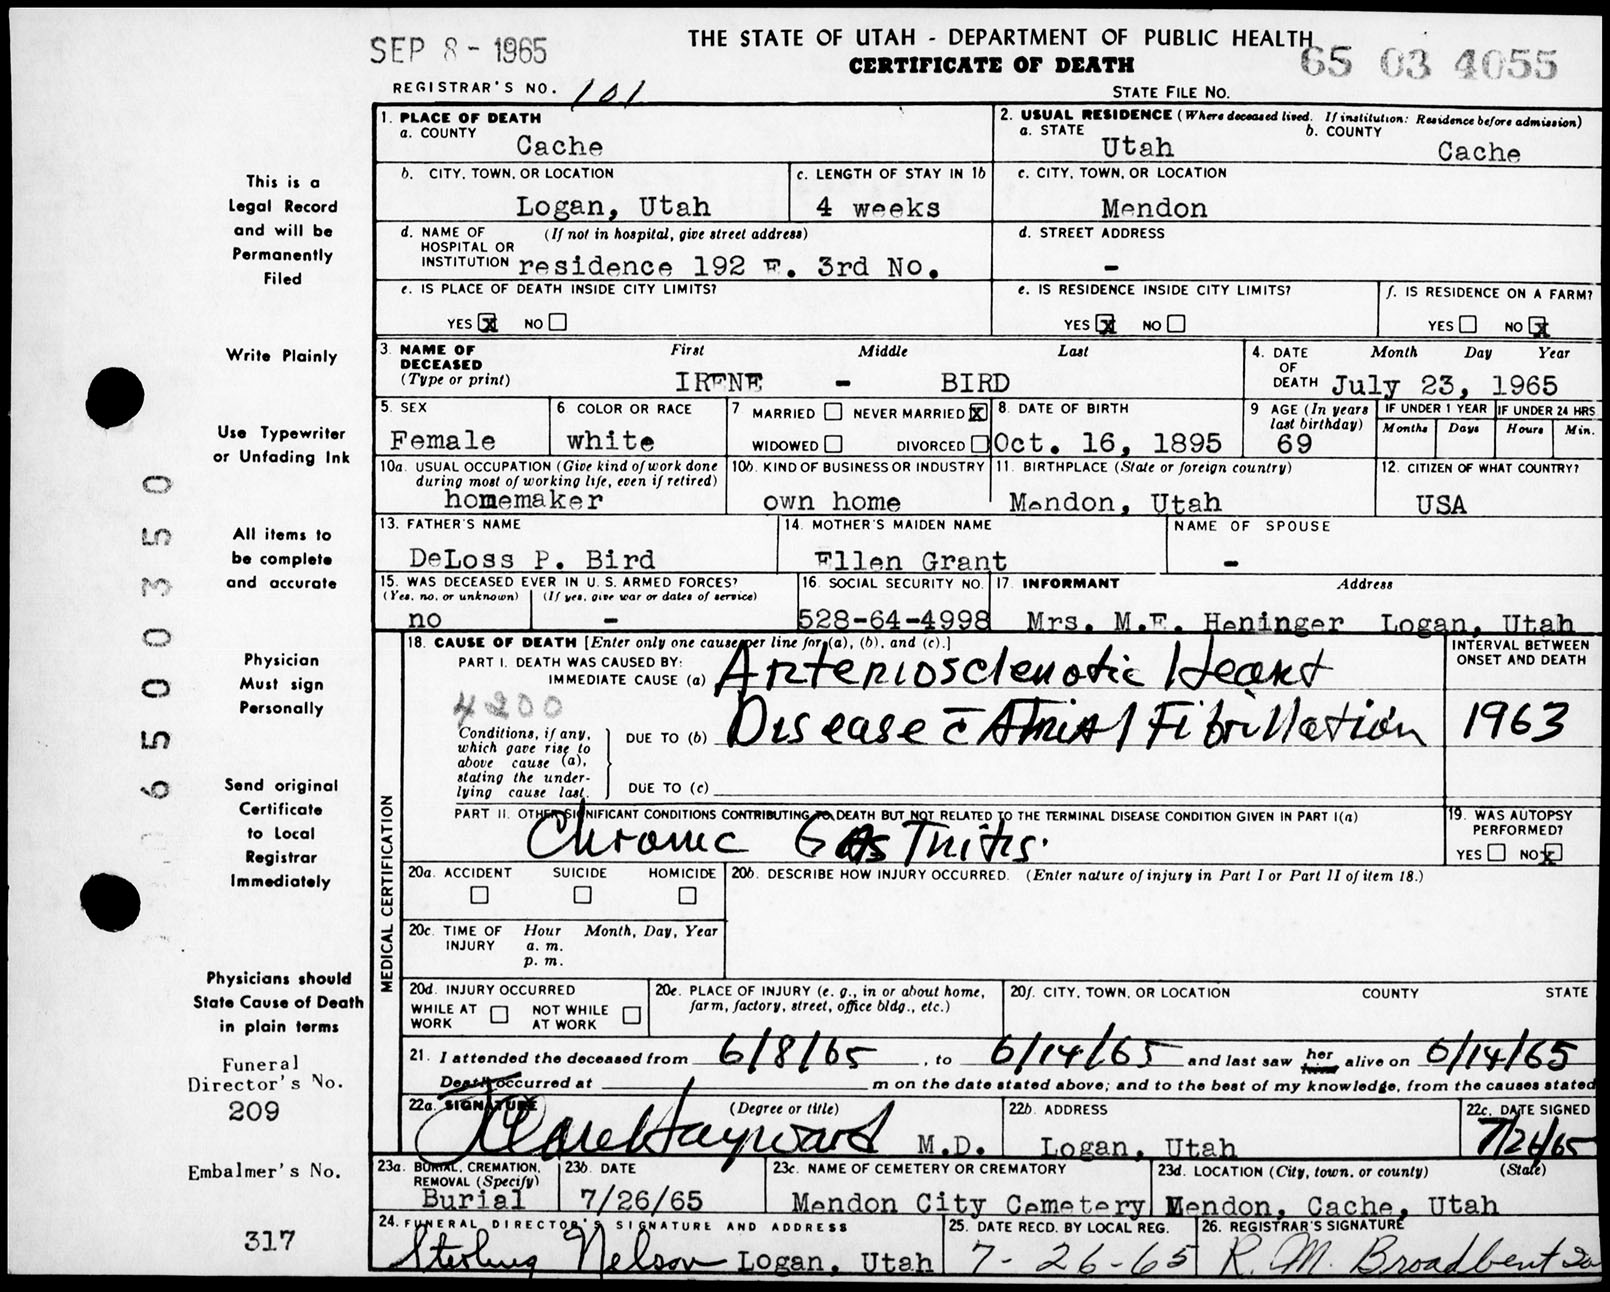 SEP 8 - 1965
THE STATE OF UTAH - DEPARTMENT OF PUBLIC HEALTH
CERTIFICATE OF DEATH
65 03 4055
REGISTRAR'S NO. 101
STATE FILE NO.
1. PLACE OF DEATH
a. COUNTY
Cache
2. USUAL RESIDENCE (Where deceased lived. If institution: Residence before admission)
a. STATE
Utah
b. COUNTY
Cache
b. CITY, TOWN, OR LOCATION
Logan, Utah
c. LENGTH OF STAY IN 1b
4 weeks
c. CITY, TOWN, OR LOCATION
Mendon
d. NAME OF HOSPITAL OR INSTITUTION
(If not in hospital, give street address)
residence 192 E. 3rd No.
d. STREET ADDRESS
-
e. IS PLACE OF DEATH INSIDE CITY LIMITS?
YES X NO
e. IS RESIDENCE INSIDE CITY LIMITS?
YES X NO
f. IS RESIDENCE ON A FARM?
YES NO X
3. NAME OF DECEASED
(Type or print)
First Middle Last
IRENE - BIRD
4. DATE OF DEATH
Month Day Year
July 23, 1965
5. SEX
Female
6 COLOR OR RACE
white
7 MARRIED NEVER MARRIED X
WIDOWED DIVORCED
8. DATE OF BIRTH
Oct. 16, 1895
9 AGE (In years last birthday)
69
IF UNDER 1 YEAR
Months Days
IF UNDER 24 HRS
Hours Min.
10a. USUAL OCCUPATION (Give kind of work done during most of working life, even if retired)
homemaker
10b. KIND OF BUSINESS OR INDUSTRY
own home
11. BIRTHPLACE (State or foreign country)
Mendon, Utah
12. CITIZEN OF WHAT COUNTRY?
USA
13. FATHER'S NAME
DeLoss P. Bird
14. MOTHER'S MAIDEN NAME
Ellen Grant
NAME OF SPOUSE
-
15. WAS DECEASED EVER IN U. S. ARMED FORCES?
(Yes, no, or unknown) (If yes, give war or dates of service)
no -
16. SOCIAL SECURITY NO.
528-64-4998
17. INFORMANT Address
Mrs. M.E. Heninger Logan, Utah
MEDICAL CERTIFICATION
18. CAUSE OF DEATH [Enter only one cause per line for (a), (b), and (c).]
PART I. DEATH WAS CAUSED BY:
IMMEDIATE CAUSE (a) Arteriosclerotic Heart
4200
Conditions, if any, which gave rise to above cause (a), stating the underlying cause last.
DUE TO (b) Disease c̄ Atrial Fibrillation
DUE TO (c)
INTERVAL BETWEEN ONSET AND DEATH
1963
PART II. OTHER SIGNIFICANT CONDITIONS CONTRIBUTING TO DEATH BUT NOT RELATED TO THE TERMINAL DISEASE CONDITION GIVEN IN PART I(a)
Chronic Gastritis.
19. WAS AUTOPSY PERFORMED?
YES NO X
20a. ACCIDENT SUICIDE HOMICIDE
20b. DESCRIBE HOW INJURY OCCURRED. (Enter nature of injury in Part I or Part II of item 18.)
20c. TIME OF INJURY
Hour Month, Day, Year
a. m.
p. m.
20d. INJURY OCCURRED
WHILE AT WORK NOT WHILE AT WORK
20e. PLACE OF INJURY (e. g., in or about home, farm, factory, street, office bldg., etc.)
20f. CITY, TOWN, OR LOCATION COUNTY STATE
21. I attended the deceased from 6/8/65, to 6/14/65 and last saw her alive on 6/14/65
Death occurred at m on the date stated above; and to the best of my knowledge, from the causes stated
22a. SIGNATURE (Degree or title)
Hayward M.D.
22b. ADDRESS
Logan, Utah
22c. DATE SIGNED
7/26/65
23a. BURIAL, CREMATION, REMOVAL (Specify)
Burial
23b. DATE
7/26/65
23c. NAME OF CEMETERY OR CREMATORY
Mendon City Cemetery
23d. LOCATION (City, town, or county) (State)
Mendon, Cache, Utah
24. FUNERAL DIRECTOR'S SIGNATURE AND ADDRESS
Sterling Nelson Logan, Utah
25. DATE RECD. BY LOCAL REG.
7-26-65
26. REGISTRAR'S SIGNATURE
R. M. Broadbent
This is a
Legal Record
and will be
Permanently
Filed
Write Plainly
Use Typewriter
or Unfading Ink
All items to
be complete
and accurate
Physician
Must sign
Personally
Send original
Certificate
to Local
Registrar
Immediately
Physicians should
State Cause of Death
in plain terms
Funeral
Director's No.
209
Embalmer's No.
317
65000350